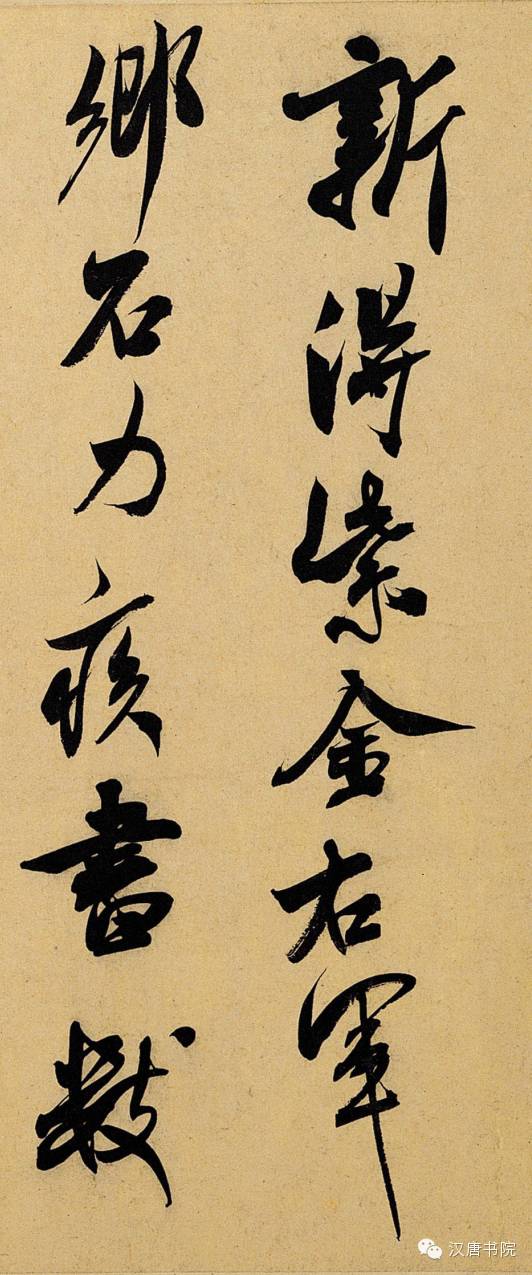 新得紫金右軍
鄉石力疾書數
汉唐书院